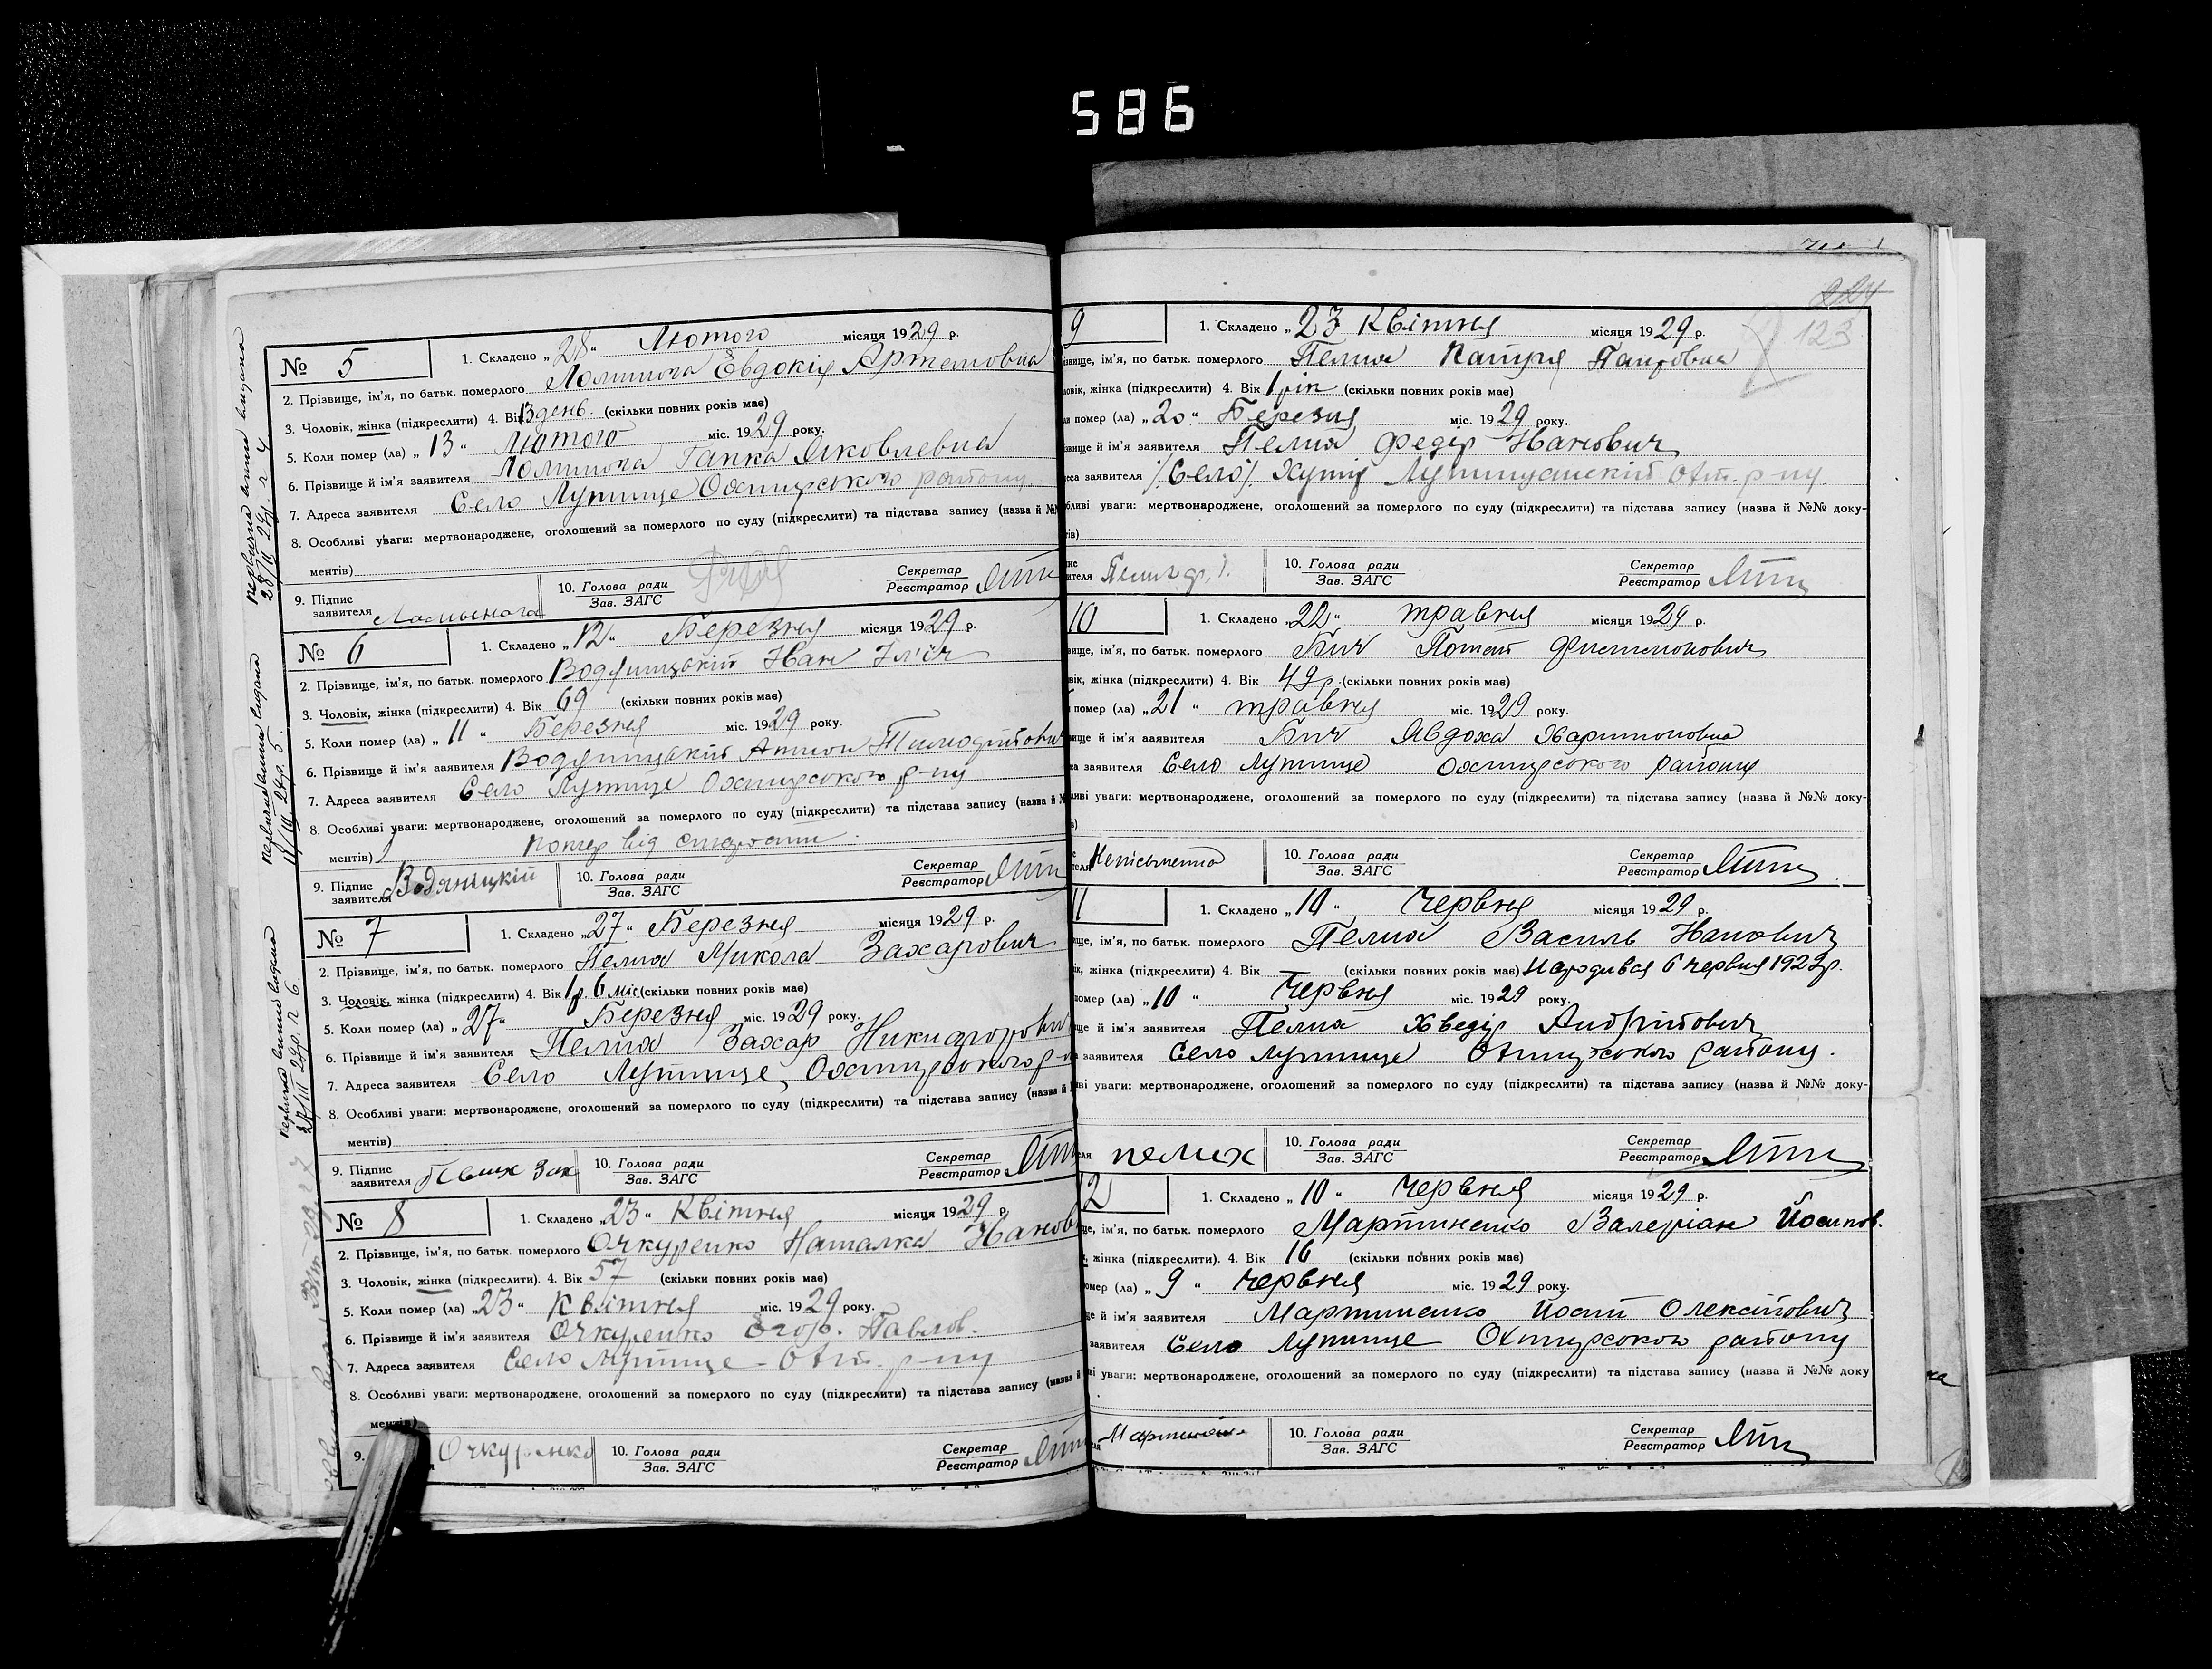 586
№ 5
1. Складено „28“ Лютого місяця 1929 р.
2. Прізвище, ім'я, по батьк. померлого Євдокія Артемовна
3. Чоловік, жінка (підкреслити) 4. Вік 13 день. (скільки повних років має)
5. Коли помер (ла) „13“ Лютого міс. 1929 року.
6. Прізвище й ім'я заявителя Гапка Яковлевна
7. Адреса заявителя Село Лутище Охтирського району
8. Особливі уваги: мертвонароджене, оголошений за померлого по суду (підкреслити) та підстава запису (назва й №№
ментів)
9. Підпис заявителя
10. Голова ради
Зав. ЗАГС
Секретар
Реєстратор
№ 6
1. Складено „12“ Березня місяця 1929 р.
2. Прізвище, ім'я, по батьк. померлого Водяницький Іван Ілліч
3. Чоловік, жінка (підкреслити) 4. Вік 69 (скільки повних років має)
5. Коли помер (ла) „11“ Березня міс. 1929 року.
6. Прізвище й ім'я заявителя Водяницький Антон
7. Адреса заявителя Село Лутище Охтирського р-ну
8. Особливі уваги: мертвонароджене, оголошений за померлого по суду (підкреслити) та підстава запису (назва й №
ментів) Помер від старости
9. Підпис заявителя Водяніцкій
10. Голова ради
Зав. ЗАГС
Секретар
Реєстратор
№ 7
1. Складено „27“ Березня місяця 1929 р.
2. Прізвище, ім'я, по батьк. померлого Пелих Микола Захарович
3. Чоловік, жінка (підкреслити) 4. Вік 1 р. 6 міс (скільки повних років має)
5. Коли помер (ла) „27“ Березня міс. 1929 року.
6. Прізвище й ім'я заявителя Пелих Захар Никифорови
7. Адреса заявителя Село Лутище Охтирського р-н
8. Особливі уваги: мертвонароджене, оголошений за померлого по суду (підкреслити) та підстава запису (назва й
ментів)
9. Підпис заявителя Пелих Зах
10. Голова ради
Зав. ЗАГС
Секретар
Реєстратор
№ 8
1. Складено „23“ Квітня місяця 1929 р.
2. Прізвище, ім'я, по батьк. померлого Очкуренко Наталка Іванов
3. Чоловік, жінка (підкреслити). 4. Вік 57 (скільки повних років має)
5. Коли помер (ла) „23“ Квітня міс. 1929 року.
6. Прізвище й ім'я заявителя Очкуренко Єгор. Павлов.
7. Адреса заявителя Село Лутище - Охт. р-ну
8. Особливі уваги: мертвонароджене, оголошений за померлого по суду (підкреслити) та підстава запису (назва й
ментів)
9. Очкуренко
10. Голова ради
Зав. ЗАГС
Секретар
Реєстратор
224
123
9
1. Складено „23 Квітня місяця 1929 р.
ізвище, ім'я, по батьк. померлого Пелих Катря
ловік, жінка (підкреслити) 4. Вік 1 рік (скільки повних років має)
и помер (ла) „20“ Березня міс. 1929 року.
звище й ім'я заявителя Пелих Федір Іванович
еса заявителя /Село/ Хутір Охт. р-ну.
бливі уваги: мертвонароджене, оголошений за померлого по суду (підкреслити) та підстава запису (назва й №№ доку-
тів)
10. Голова ради
Зав. ЗАГС
Секретар
Реєстратор
10
1. Складено „22“ травня місяця 1929 р.
вище, ім'я, по батьк. померлого Бич Потап Филимонович
вік, жінка (підкреслити) 4. Вік 49 р. (скільки повних років має)
помер (ла) „21“ травня міс. 1929 року.
вище й ім'я заявителя Бич Явдоха Харитоновна
са заявителя Село Лутище Охтирського району
ливі уваги: мертвонароджене, оголошений за померлого по суду (підкреслити) та підстава запису (назва й №№ доку-
Неписьменна
10. Голова ради
Зав. ЗАГС
Секретар
Реєстратор
11
1. Складено „10“ Червня місяця 1929 р.
ище, ім'я, по батьк. померлого Пелих Василь Іванович
ік, жінка (підкреслити) 4. Вік — (скільки повних років має) Народився 6 червня 1929 р.
помер (ла) „10“ Червня міс. 1929 року.
ще й ім'я заявителя Пелих Хведір Андрійович
заявителя Село Лутище Охтирського району.
ві уваги: мертвонароджене, оголошений за померлого по суду (підкреслити) та підстава запису (назва й №№ доку-
пелих
10. Голова ради
Зав. ЗАГС
Секретар
Реєстратор
12
1. Складено „10“ Червня місяця 1929 р.
ще, ім'я, по батьк. померлого Мартиненко Валеріан Йосипов.
, жінка (підкреслити). 4. Вік 16 (скільки повних років має)
омер (ла) „9“ Червня міс. 1929 року.
ще й ім'я заявителя Мартиненко Йосип Олексійович
заявителя Село Лутище Охтирського району
ві уваги: мертвонароджене, оголошений за померлого по суду (підкреслити) та підстава запису (назва й №№ доку
Мартиненко
10. Голова ради
Зав. ЗАГС
Секретар
Реєстратор